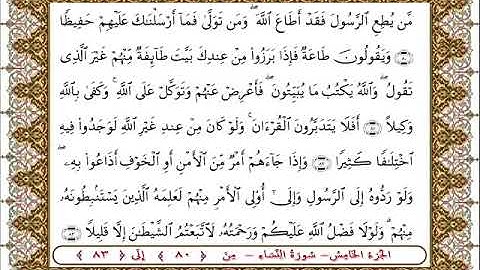 مَّن يُطِعِ الرَّسُولَ فَقَدْ أَطَاعَ اللَّهَ ۖ وَمَن تَوَلَّىٰ فَمَا أَرْسَلْنَاكَ عَلَيْهِمْ حَفِيظًا
﴿٨٠﴾ وَيَقُولُونَ طَاعَةٌ فَإِذَا بَرَزُوا۟ مِنْ عِندِكَ بَيَّتَ طَآئِفَةٌ مِّنْهُمْ غَيْرَ الَّذِى
تَقُولُ ۖ وَاللَّهُ يَكْتُبُ مَا يُبَيِّتُونَ ۖ فَأَعْرِضْ عَنْهُمْ وَتَوَكَّلْ عَلَى اللَّهِ ۚ وَكَفَىٰ بِاللَّهِ
وَكِيلًا ﴿٨١﴾ أَفَلَا يَتَدَبَّرُونَ الْقُرْءَانَ ۚ وَلَوْ كَانَ مِنْ عِندِ غَيْرِ اللَّهِ لَوَجَدُوا۟ فِيهِ
اخْتِلَٰفًا كَثِيرًا ﴿٨٢﴾ وَإِذَا جَآءَهُمْ أَمْرٌ مِّنَ الْأَمْنِ أَوِ الْخَوْفِ أَذَاعُوا۟ بِهِۦ ۖ
وَلَوْ رَدُّوهُ إِلَى الرَّسُولِ وَإِلَىٰٓ أُو۟لِى الْأَمْرِ مِنْهُمْ لَعَلِمَهُ الَّذِينَ يَسْتَنۢبِطُونَهُۥ
مِنْهُمْ ۗ وَلَوْلَا فَضْلُ اللَّهِ عَلَيْكُمْ وَرَحْمَتُهُۥ لَاتَّبَعْتُمُ الشَّيْطَٰنَ إِلَّا قَلِيلًا ﴿٨٣﴾
الجزء الخامس - سورة النساء - من ﴿ ٨٠ ﴾ إلى ﴿ ٨٣ ﴾